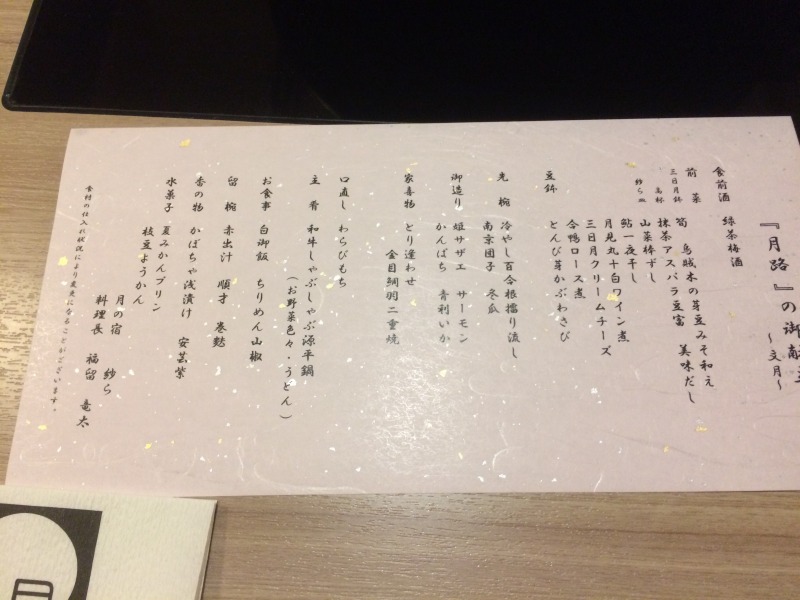 『月路』の御献立
～文月～
食前酒 緑茶梅酒
前菜 筍 烏賊木の芽豆みそ和え
三日月鉢 抹茶アスパラ豆富 美味だし
高杯 山菜棒ずし
紗ら皿 鮎一夜干し
月見丸十白ワイン煮
三日月クリームチーズ
合鴨ロース煮
豆鉢 とんび芽かぶわさび
先椀 冷やし百合根擂り流し
南京団子 冬瓜
御造り 姫サザエ サーモン
かんぱち 青利いか
家喜物 とり逢わせ
金目鯛羽二重焼
口直し わらびもち
主肴 和牛しゃぶしゃぶ源平鍋
（お野菜色々・うどん）
お食事 白御飯 ちりめん山椒
留椀 赤出汁 順才 巻麩
香の物 かぼちゃ浅漬け 安芸紫
水菓子 夏みかんプリン
枝豆ようかん
月の宿 紗ら
料理長 福留 竜太
食材の仕入れ状況により変更になることがございます。
月